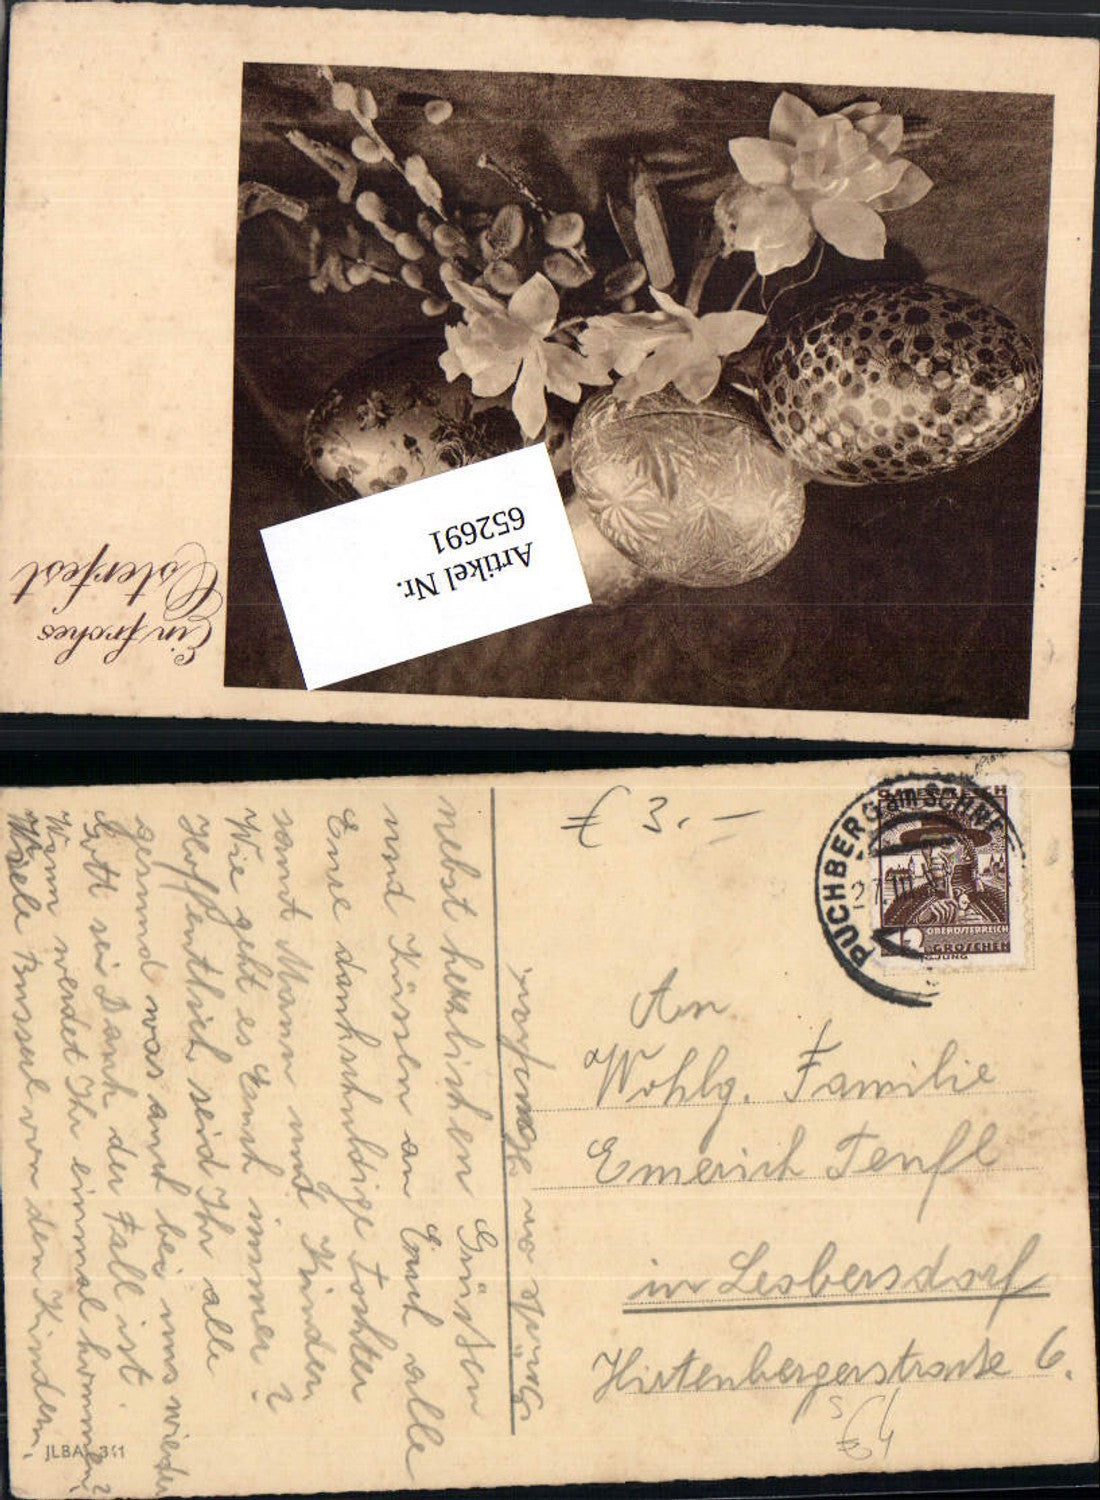 Ein frohes
Osterfest
Artikel Nr.
652691
€ 3.-
PUCHBERG am SCHNE
27.III
ÖSTERREICH
OBERÖSTERREICH
5 GROSCHEN
An
Wohlg. Familie
Emerich Teufl
in Leobersdorf
Hirtenbergerstrasse 6.
nebst herzlichen Grüssen
und Küssen an Euch alle
Eure dankschuldige Tochter
samt Mann und Kinder.
Wie geht es Euch immer?
Hoffentlich seid Ihr alle
gesund was auch bei uns wieder
Gott sei Dank der Fall ist.
Wann werdet Ihr einmal kommen?
Viele Bussel von den Kindern.
JLBA 311